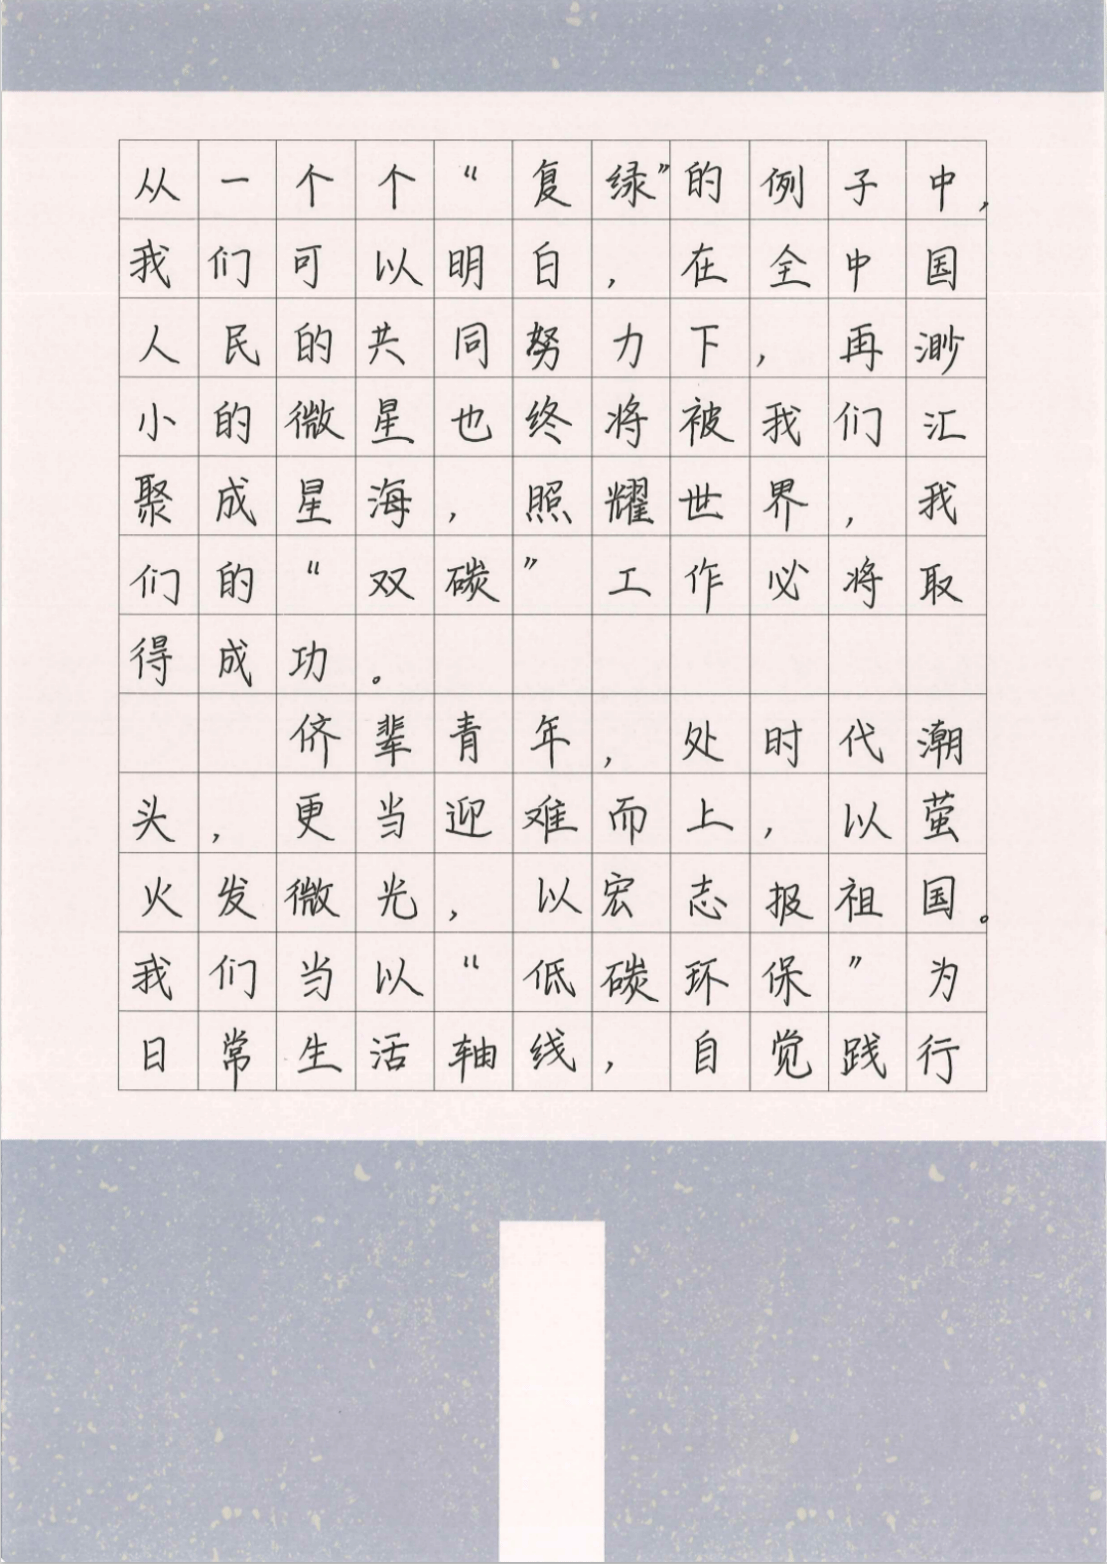 从一个个“复绿”的例子中，
我们可以明白，在全中国
人民的共同努力下，再渺
小的微星也终将被我们汇
聚成星海，照耀世界，我
们的“双碳”工作必将取
得成功。
侪辈青年，处时代潮
头，更当迎难而上，以萤
火发微光，以宏志报祖国。
我们当以“低碳环保”为
日常生活轴线，自觉践行